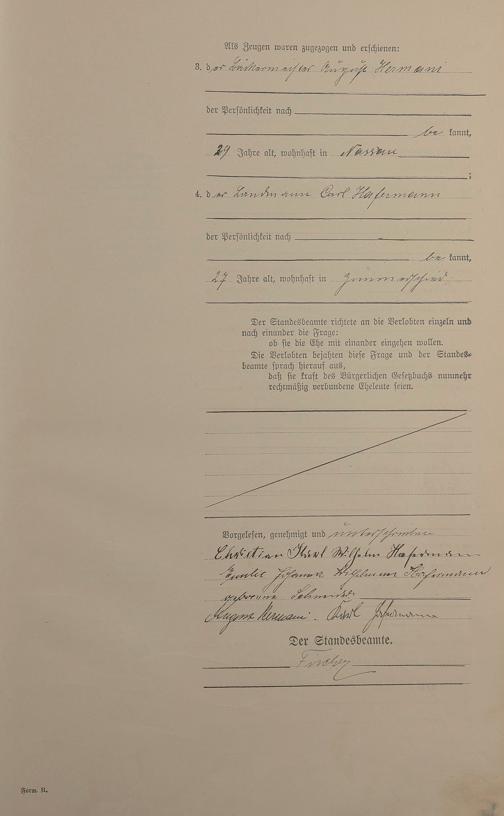 Als Zeugen waren zugezogen und erschienen:
3. der Bäckermeister August Hermani
der Persönlichkeit nach
be kannt,
29 Jahre alt, wohnhaft in Nassau
;
4. der Landmann Carl Hafermann
der Persönlichkeit nach
be kannt,
27 Jahre alt, wohnhaft in Zimmerschied
Der Standesbeamte richtete an die Verlobten einzeln und
nach einander die Frage:
ob sie die Ehe mit einander eingehen wollen.
Die Verlobten bejahten diese Frage und der Standes-
beamte sprach hierauf aus,
daß sie kraft des Bürgerlichen Gesetzbuchs nunmehr
rechtmäßig verbundene Eheleute seien.
Vorgelesen, genehmigt und unterschrieben
Christian Karl Wilhelm Hafermann
Johanna Wilhelmine Hafermann
geborene Schneider
August Hermani. Carl Hafermann
Der Standesbeamte.
Form. B.